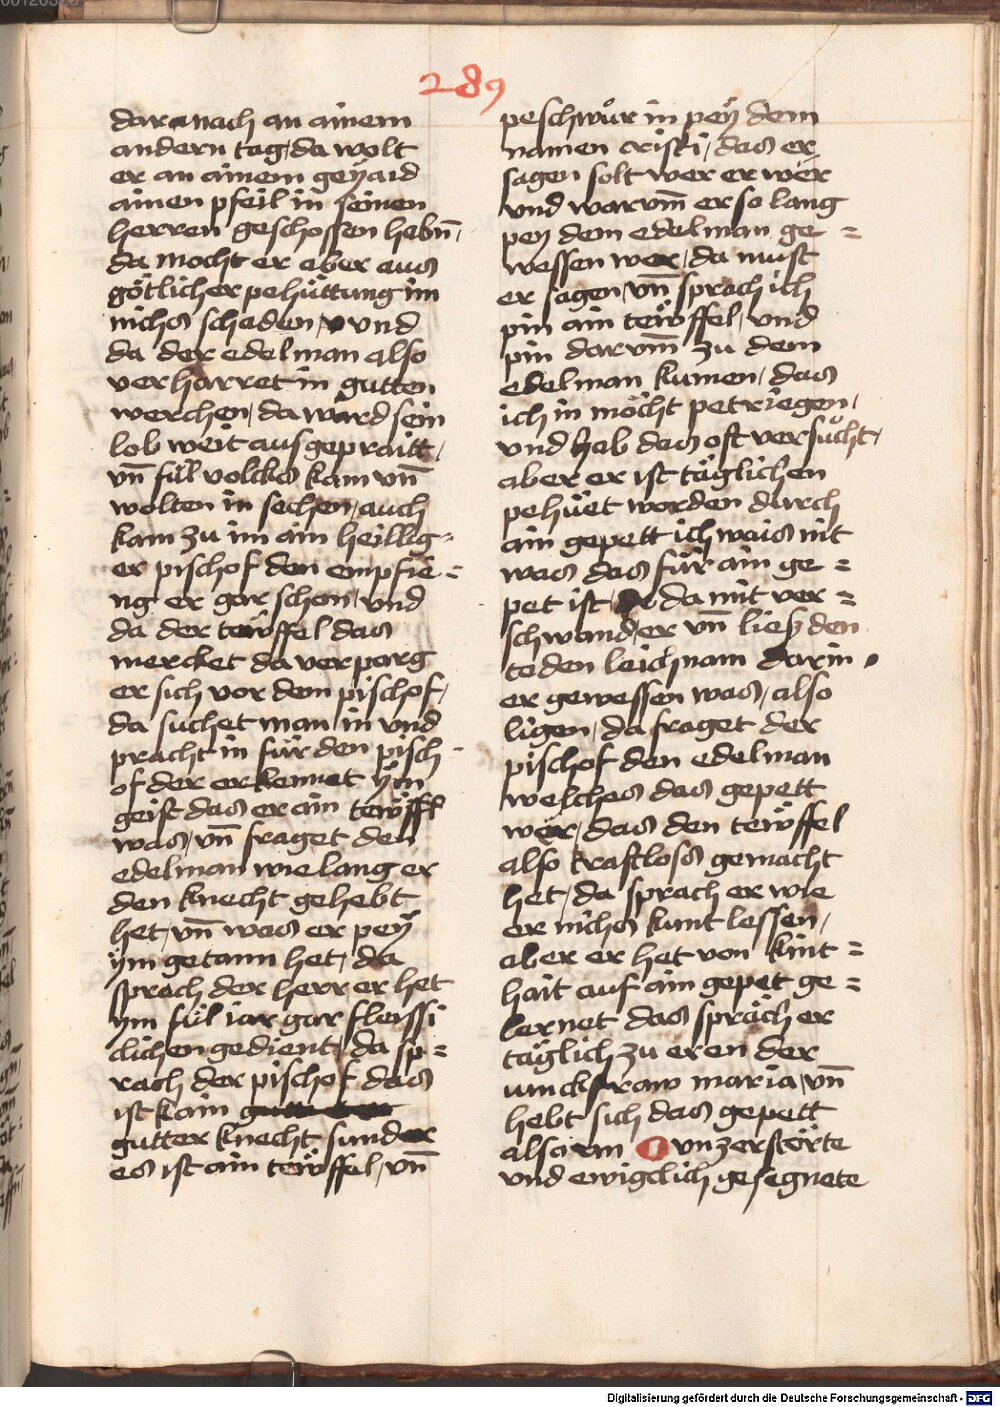 289
dara nach an ainem
andern tag, da wolt
er an ainem geÿaid
ainen pfeil in seinen
herren geschossen hebn̄,
da mocht er eber aus
götlicher pehüttung im
nichcz schaden, vnd
da der edelman also
verharret in gutten
werchen, da ward sein
lob weit aus gepraitt,
vn̄ fül volckes kam vn̄
wolten in sechen, auch
kam zu im ain heillig=
er pischof den empfie=
ng er gar schon, vnd
da der tewffel das
mercket da verparg
er sich vor dem pischof,
da suchet man in vnd
pracht in für den pisch-
of der erkennet ÿm
geist das er ain tewffl
was, vn̄ fraget den
edelman wie lang er
den knecht gehebt
het, vn̄ was er peÿ
ÿm getann het, da
sprach der herr er het
ym fül iar gar fleissi
clichen gedient, da sp=
rach der pischof das
ist kain
gutter knecht sunder
es ist ain tewffel, vn̄
peschwůr in peÿ dem
namen cristi, das er
sagen solt wer er wer
vnd warvm̄ er so lang
pey dem edelman ge=
wessen wer, da must
er sagen, vn̄ sprach ich
pin ain tewffel, vnd
pin darvm̄ zu dem
edelman kumen, das
ich in möcht petriegen,
vnd hab das oft versůcht,
aber er ist täglichen
pehüet worden durch
ain gepett ich wais nit
was das für ain ge=
pet ist da mit ver=
schwand er vn̄ liesz den
te den leichnam darin
er gewessen was, also
ligen, da fraget der
pischof den edelman
welches das gepett
wer, das den tewffel
also kraftloss gemacht
het, da sprach er wie
er nichcz kunt lessen,
aber er het von kint=
hait auf ain gepet ge=
lernet das spräch er
täglich zu eren der
iunckfraw maria, vn̄
hebt sich das gepett
also an O vnzerstörte
vnd ewigclich gesegnete
Digitalisierung gefördert durch die Deutsche Forschungsgemeinschaft - DFG